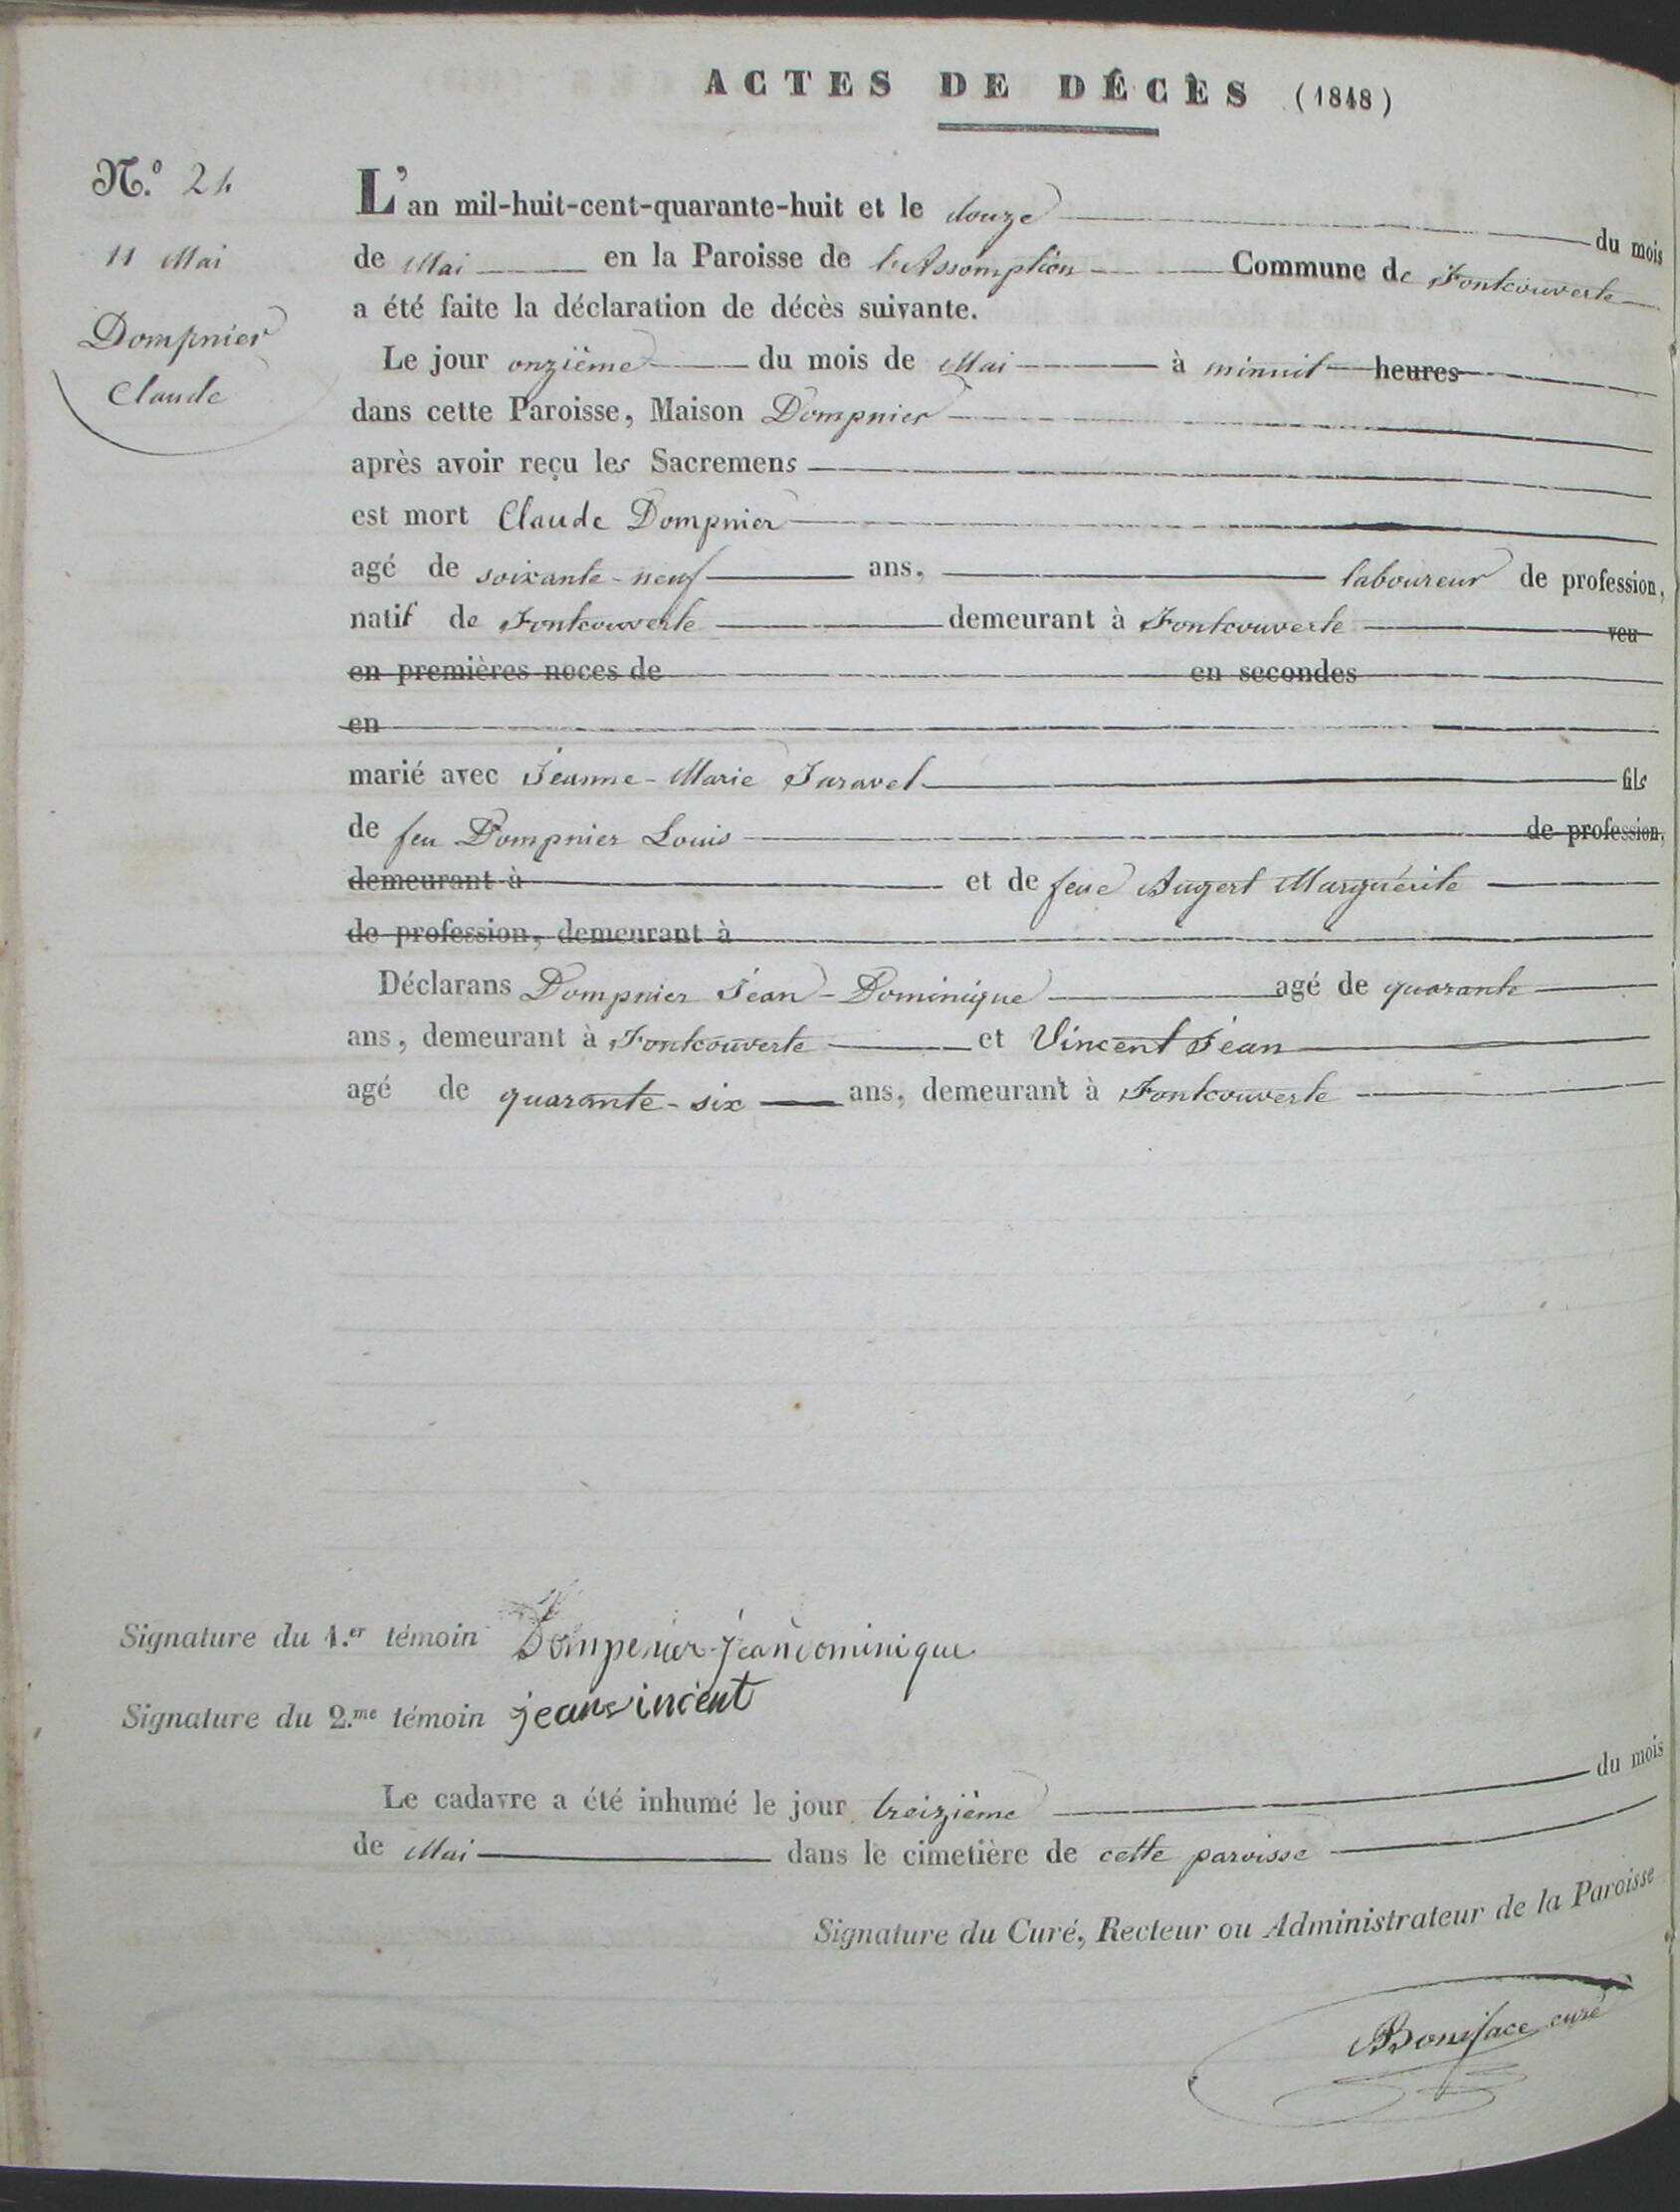 ACTES DE DÉCÈS (1848)
N.º 21
11 Mai
Dompnier
Claude
L'an mil-huit-cent-quarante-huit et le douze du mois
de Mai en la Paroisse de l'Assomption Commune de Fontcouverte
a été faite la déclaration de décès suivante.
Le jour onzième du mois de Mai à minuit heures
dans cette Paroisse, Maison Dompnier
après avoir reçu les Sacremens
est mort Claude Dompnier
agé de soixante-neuf ans, laboureur de profession,
natif de Fontcouverte demeurant à Fontcouverte veu
en premières noces de en secondes
en
marié avec Jeanne-Marie Taravel fils
de feu Dompnier Louis de profession,
demeurant à et de feue Augert Marguérite
de profession, demeurant à
Déclarans Dompnier Jean-Dominique agé de quarante
ans, demeurant à Fontcouverte et Vincent Jean
agé de quarante-six ans, demeurant à Fontcouverte
Signature du 1.er témoin Dompenier jean dominique
Signature du 2.me témoin jean vincent
Le cadavre a été inhumé le jour treizième du mois
de Mai dans le cimetière de cette paroisse
Signature du Curé, Recteur ou Administrateur de la Paroisse
Boniface curé